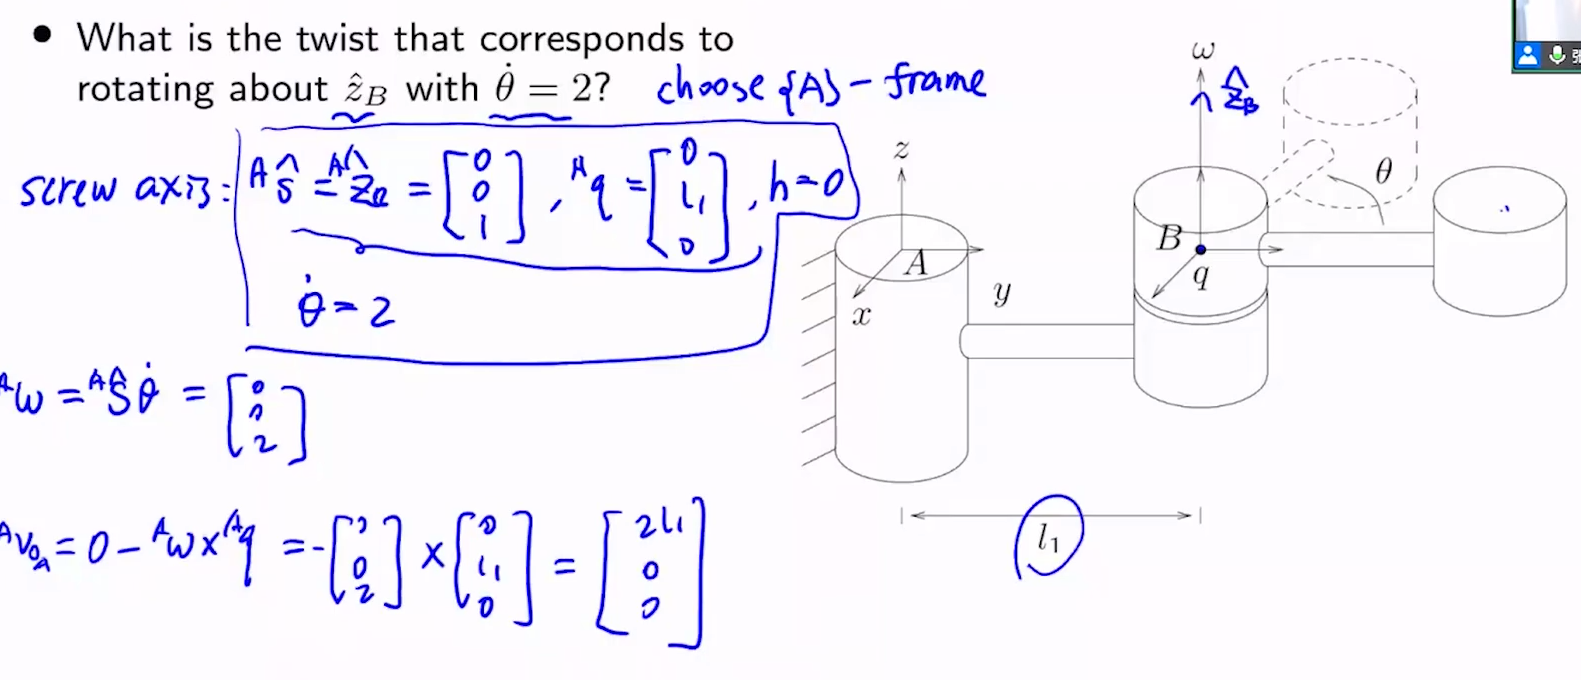 • What is the twist that corresponds to
rotating about ẑ_B with θ̇ = 2? choose {A} - frame
screw axis: ᴬŝ = ᴬẑ_B = [0 0 1], ᴬq = [0 l₁ 0], h=0
θ̇ = 2
ᴬω = ᴬŝθ̇ = [0 0 2]
ᴬv_{o_A} = 0 - ᴬω × ᴬq = -[0 0 2] × [0 l₁ 0] = [2l₁ 0 0]
ω
ẑ_B
z
θ
A
B
q
y
x
l₁